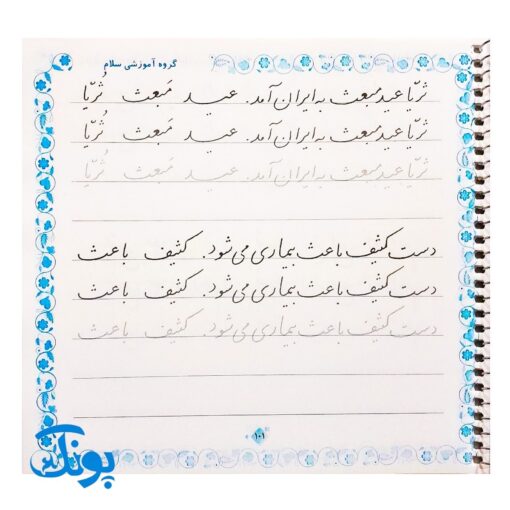 گروه آموزشی سلام
ثریّا عید مبعث به ایران آمد. عید مَبعث ثُریّا
ثریّا عید مبعث به ایران آمد. عید مَبعث ثُریّا
ثریّا عید مبعث به ایران آمد. عید مَبعث ثُریّا
دست کثیف باعث بیماری می‌شود. کثیف باعث
دست کثیف باعث بیماری می‌شود. کثیف باعث
دست کثیف باعث بیماری می‌شود. کثیف باعث
۱۰۱
پونک